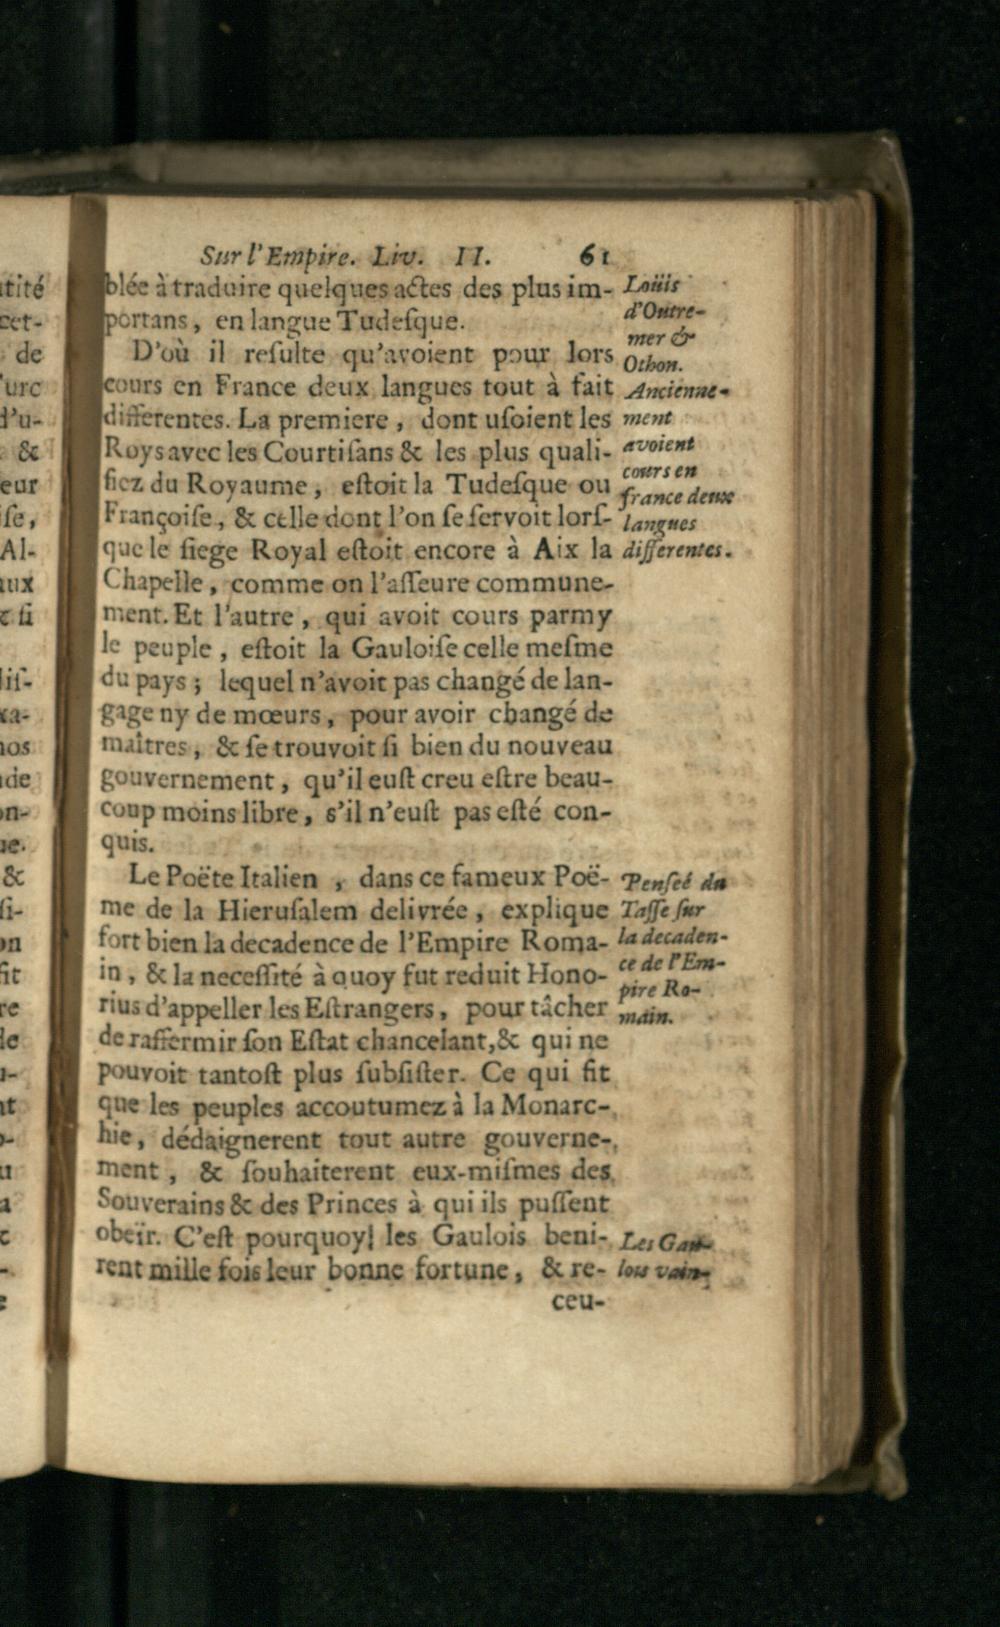 Sur l'Empire. Liv. II. 61
blée à traduire quelques actes des plus im-
portans, en langue Tudeſque.
D'où il reſulte qu'avoient pour lors
cours en France deux langues tout à fait
differentes. La premiere, dont uſoient les
Roys avec les Courtiſans & les plus quali-
fiez du Royaume, eſtoit la Tudeſque ou
Françoiſe, & celle dont l'on ſe ſervoit lorſ-
que le ſiege Royal eſtoit encore à Aix la
Chapelle, comme on l'aſſeure commune-
ment. Et l'autre, qui avoit cours parmy
le peuple, eſtoit la Gauloiſe celle meſme
du pays; lequel n'avoit pas changé de lan-
gage ny de mœurs, pour avoir changé de
maîtres, & ſe trouvoit ſi bien du nouveau
gouvernement, qu'il euſt creu eſtre beau-
coup moins libre, s'il n'euſt pas eſté con-
quis.
Le Poëte Italien, dans ce fameux Poë-
me de la Hieruſalem delivrée, explique
fort bien la decadence de l'Empire Roma-
in, & la neceſſité à quoy fut reduit Hono-
rius d'appeller les Eſtrangers, pour tâcher
de raffermir ſon Eſtat chancelant, & qui ne
pouvoit tantoſt plus ſubſiſter. Ce qui fit
que les peuples accoutumez à la Monarc-
hie, dédaignerent tout autre gouverne-
ment, & ſouhaiterent eux-miſmes des
Souverains & des Princes à qui ils puſſent
obeïr. C'eſt pourquoy! les Gaulois beni-
rent mille fois leur bonne fortune, & re-
ceu-
Loüis
d'Outre-
mer &
Othon.
Ancienne-
ment
avoient
cours en
france deux
langues
differentes.
Penſeé du
Taſſe ſur
la decaden-
ce de l'Em-
pire Ro-
main.
Les Gau-
lois vain-